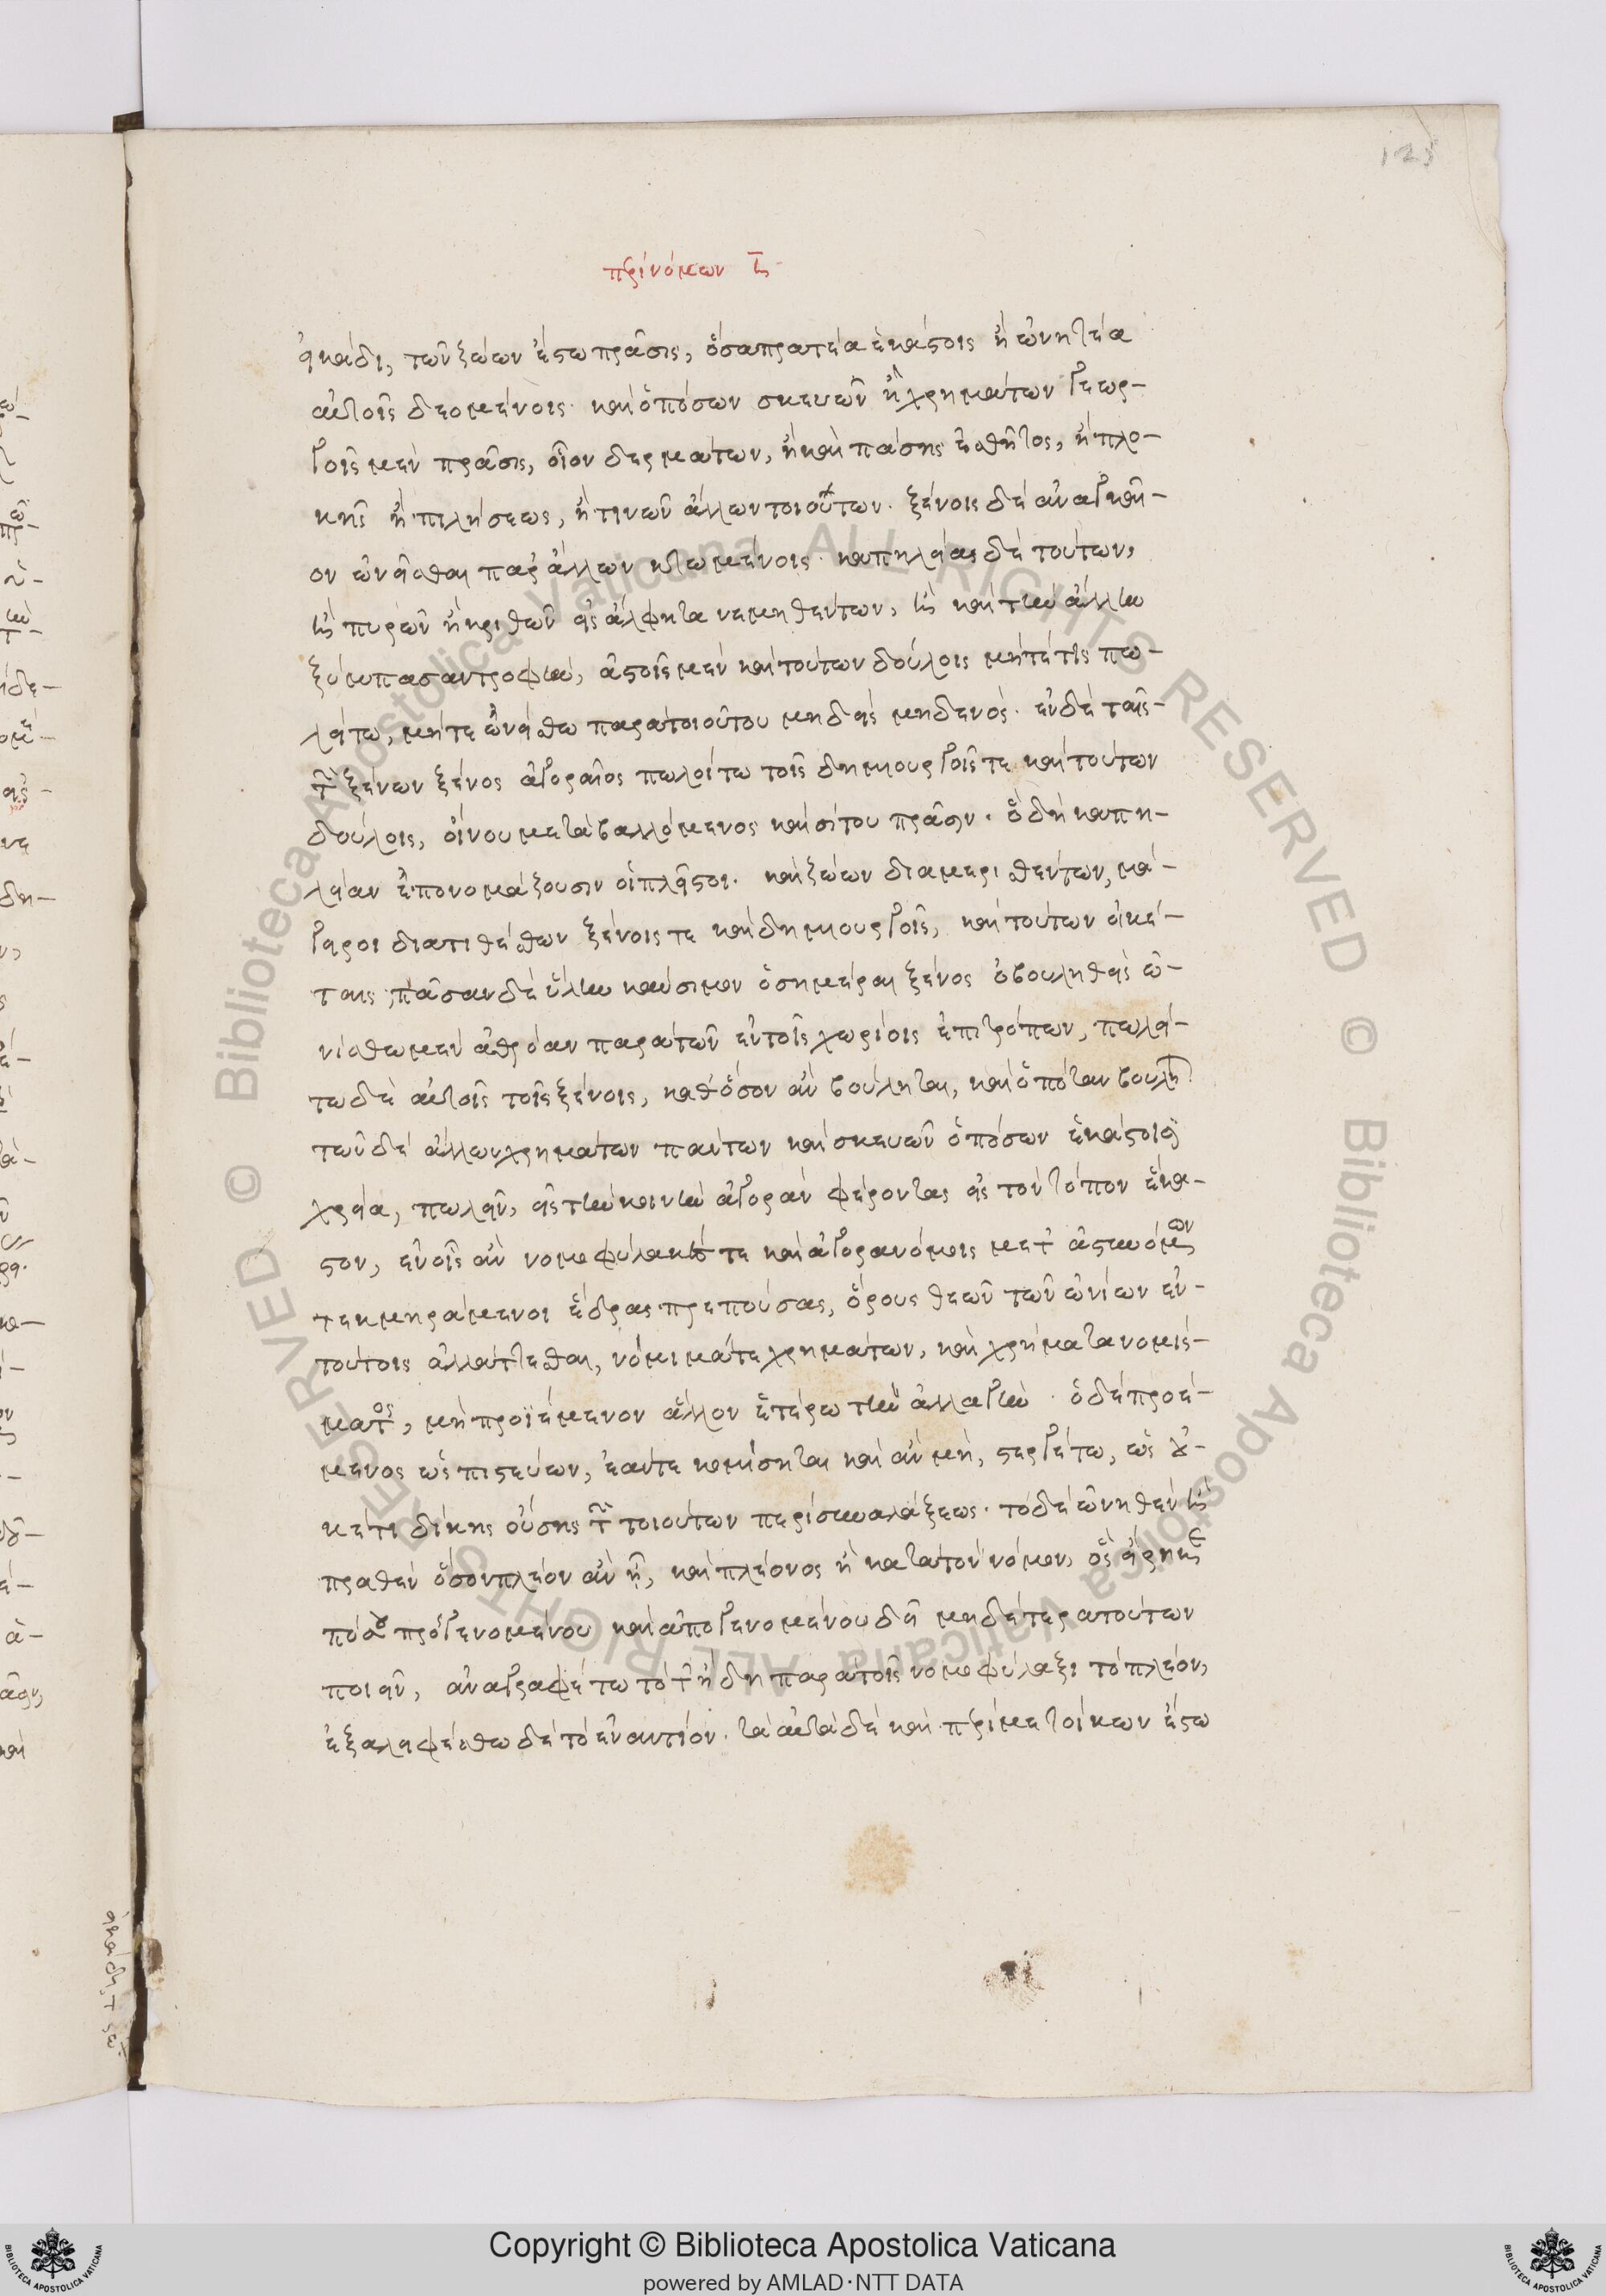 125
περὶ νόμων η
εἰκάδι, τῶν ζώων ἔστω πρᾶσις, ὅσα πρατέα ἑκάστοις ἢ ὠνητέα
αὐτοῖς δεομένοις. καὶ ὁπόσων σκευῶν ἢ χρημάτων γεωρ-
γοῖς μὲν πρᾶσις, οἷον δερμάτων, ἢ καὶ πάσης ἐσθῆτος, ἢ πλο-
κῆς ἢ πιλήσεως, ἤ τινων ἄλλων τοιούτων. ξένοις δὲ ἀναγκαῖ-
ον ὠνεῖσθαι παρ' ἄλλων κτωμένοις. καπηλείας δὲ τούτων,
ἢ πυρῶν ἢ κριθῶν εἰς ἄλφιτα νεμηθέντων, ἢ καὶ τὴν ἄλλην
ξύμπασαν τροφὴν, ἀστοῖς μὲν καὶ τούτων δούλοις μήτέ τις πω-
λείτω, μήτε ὠνείσθω παρὰ τοιούτου μηδεὶς μηδενός. ἐν δὲ ταῖς
τῶν ξένων ξένος ἀγοραῖος πωλοίτω τοῖς δημιουργοῖς τε καὶ τούτων
δούλοις, οἴνου μεταβαλλόμενος καὶ σίτου πρᾶσιν. ὃ δὴ καπη-
λείαν ἐπονομάζουσιν οἱ πλεῖστοι. καὶ ζώων διαμερισθέντων, μά-
γειροι διατιθέσθων ξένοις τε καὶ δημιουργοῖς, καὶ τούτων οἰκέ-
ταις. πᾶσαν δὲ ὕλην καύσιμον ὁσημέραι ξένος ὁ βουληθεὶς ὠ-
νείσθω μὲν ἀθρόαν παρὰ τῶν ἐν τοῖς χωρίοις ἐπιτρόπων, πωλεί-
τω δὲ αὐτοῖς τοῖς ξένοις, καθ' ὅσον ἂν βούληται, καὶ ὁπόταν βούλη
τῶν δὲ ἄλλων χρημάτων πάντων καὶ σκευῶν ὁπόσων ἑκάστοισι
χρεία, πωλεῖν, εἰς τὴν κοινὴν ἀγορὰν φέροντας εἰς τὸν τόπον ἕκα-
στον, ἐν οἷς ἂν νομοφύλακές τε καὶ ἀγορανόμοις μετ' ἀστυνόμων
τεκμηράμενοι ἕδρας πρεπούσας, ὅρους θεῶν τῶν ὠνίων ἐν
τούτοις ἀλλάττεσθαι, νόμισμά τε χρημάτων, καὶ χρήματα νομίσ-
ματος, μὴ προϊέμενον ἄλλον ἑτέρω τὴν ἀλλαγήν. ὁ δὲ προέ-
μενος ὡς πιστεύων, ἐάντε κομίσηται καὶ ἂν μὴ, στεργέτω, ὡς οὐ-
κέτι δίκης οὔσης τῶν τοιούτων περὶ συναλλάξεως. τὸ δὲ ὠνηθὲν ἢ
πραθὲν ὅσον πλέον ἂν ᾖ, καὶ πλέονος ἢ κατὰ τὸν νόμον, ὃς εἴρηκε
πόσου προσγενομένου καὶ ἀπογενομένου δεῖ μηδέτερα τούτων
ποιεῖν, ἀναγραφέτω τότ' ἤδη παρὰ τοῖς νομοφύλαξι τὸ πλέον,
ἐξαλειφέσθω δὲ τὸ ἐναντίον. τὰ αὐτὰ δὲ καὶ περὶ μετοίκων ἔστω
Copyright © Biblioteca Apostolica Vaticana
powered by AMLAD·NTT DATA